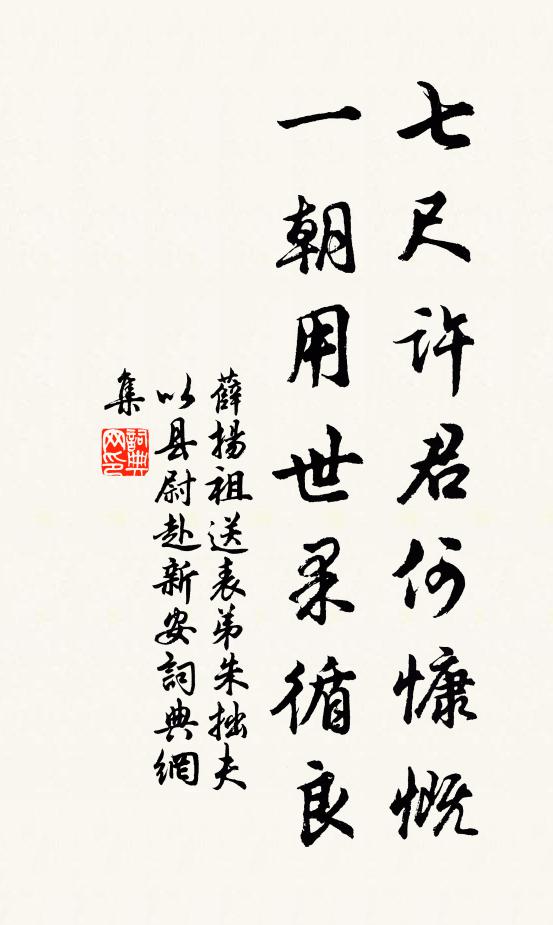 七尺許君何慷慨
一朝用世果循良
薛揚祖送表弟朱拙夫
以县尉赴新安詞典網
集
詞典网印